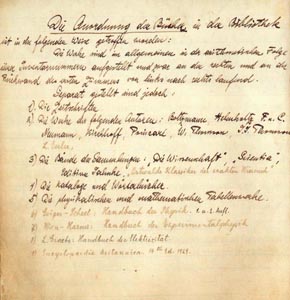 Die Anordnung der Bücher in der Bibliothek
ist in der folgenden Weise getroffen worden:
Die Werke sind im allgemeinen in der arithmetischen Folge
ihrer Inventarnummern aufgestellt und zwar an der rechten und an der
Rückwand des ersten Zimmers von links nach rechts laufend.
Separat gestellt sind jedoch:
1) Die Zeitschriften
2) Die Werke der folgenden Autoren: Boltzmann Helmholtz F. u. C.
Neumann, Kirchhoff Poincaré, W. Thomson, J.J. Thomson
L. Euler,
3) Die Bände der Sammlungen: "Die Wissenschaft", "Scientia",
Editine Jahnke", Ostwalds Klassiker der exakten Wissensch.
4) Die Kataloge und Wörterbücher
5) Die physikalischen und mathematischen Tabellenwerke.
6) Geiger-Scheel: Handbuch der Physik. 1. u. 2. Aufl.
7) Wien-Harms: Handbuch der Experimentalphysik
8) L. Graetz: Handbuch der Elektrizität.
9) Encyclopaedia Britannica. 14th Ed. 1929.